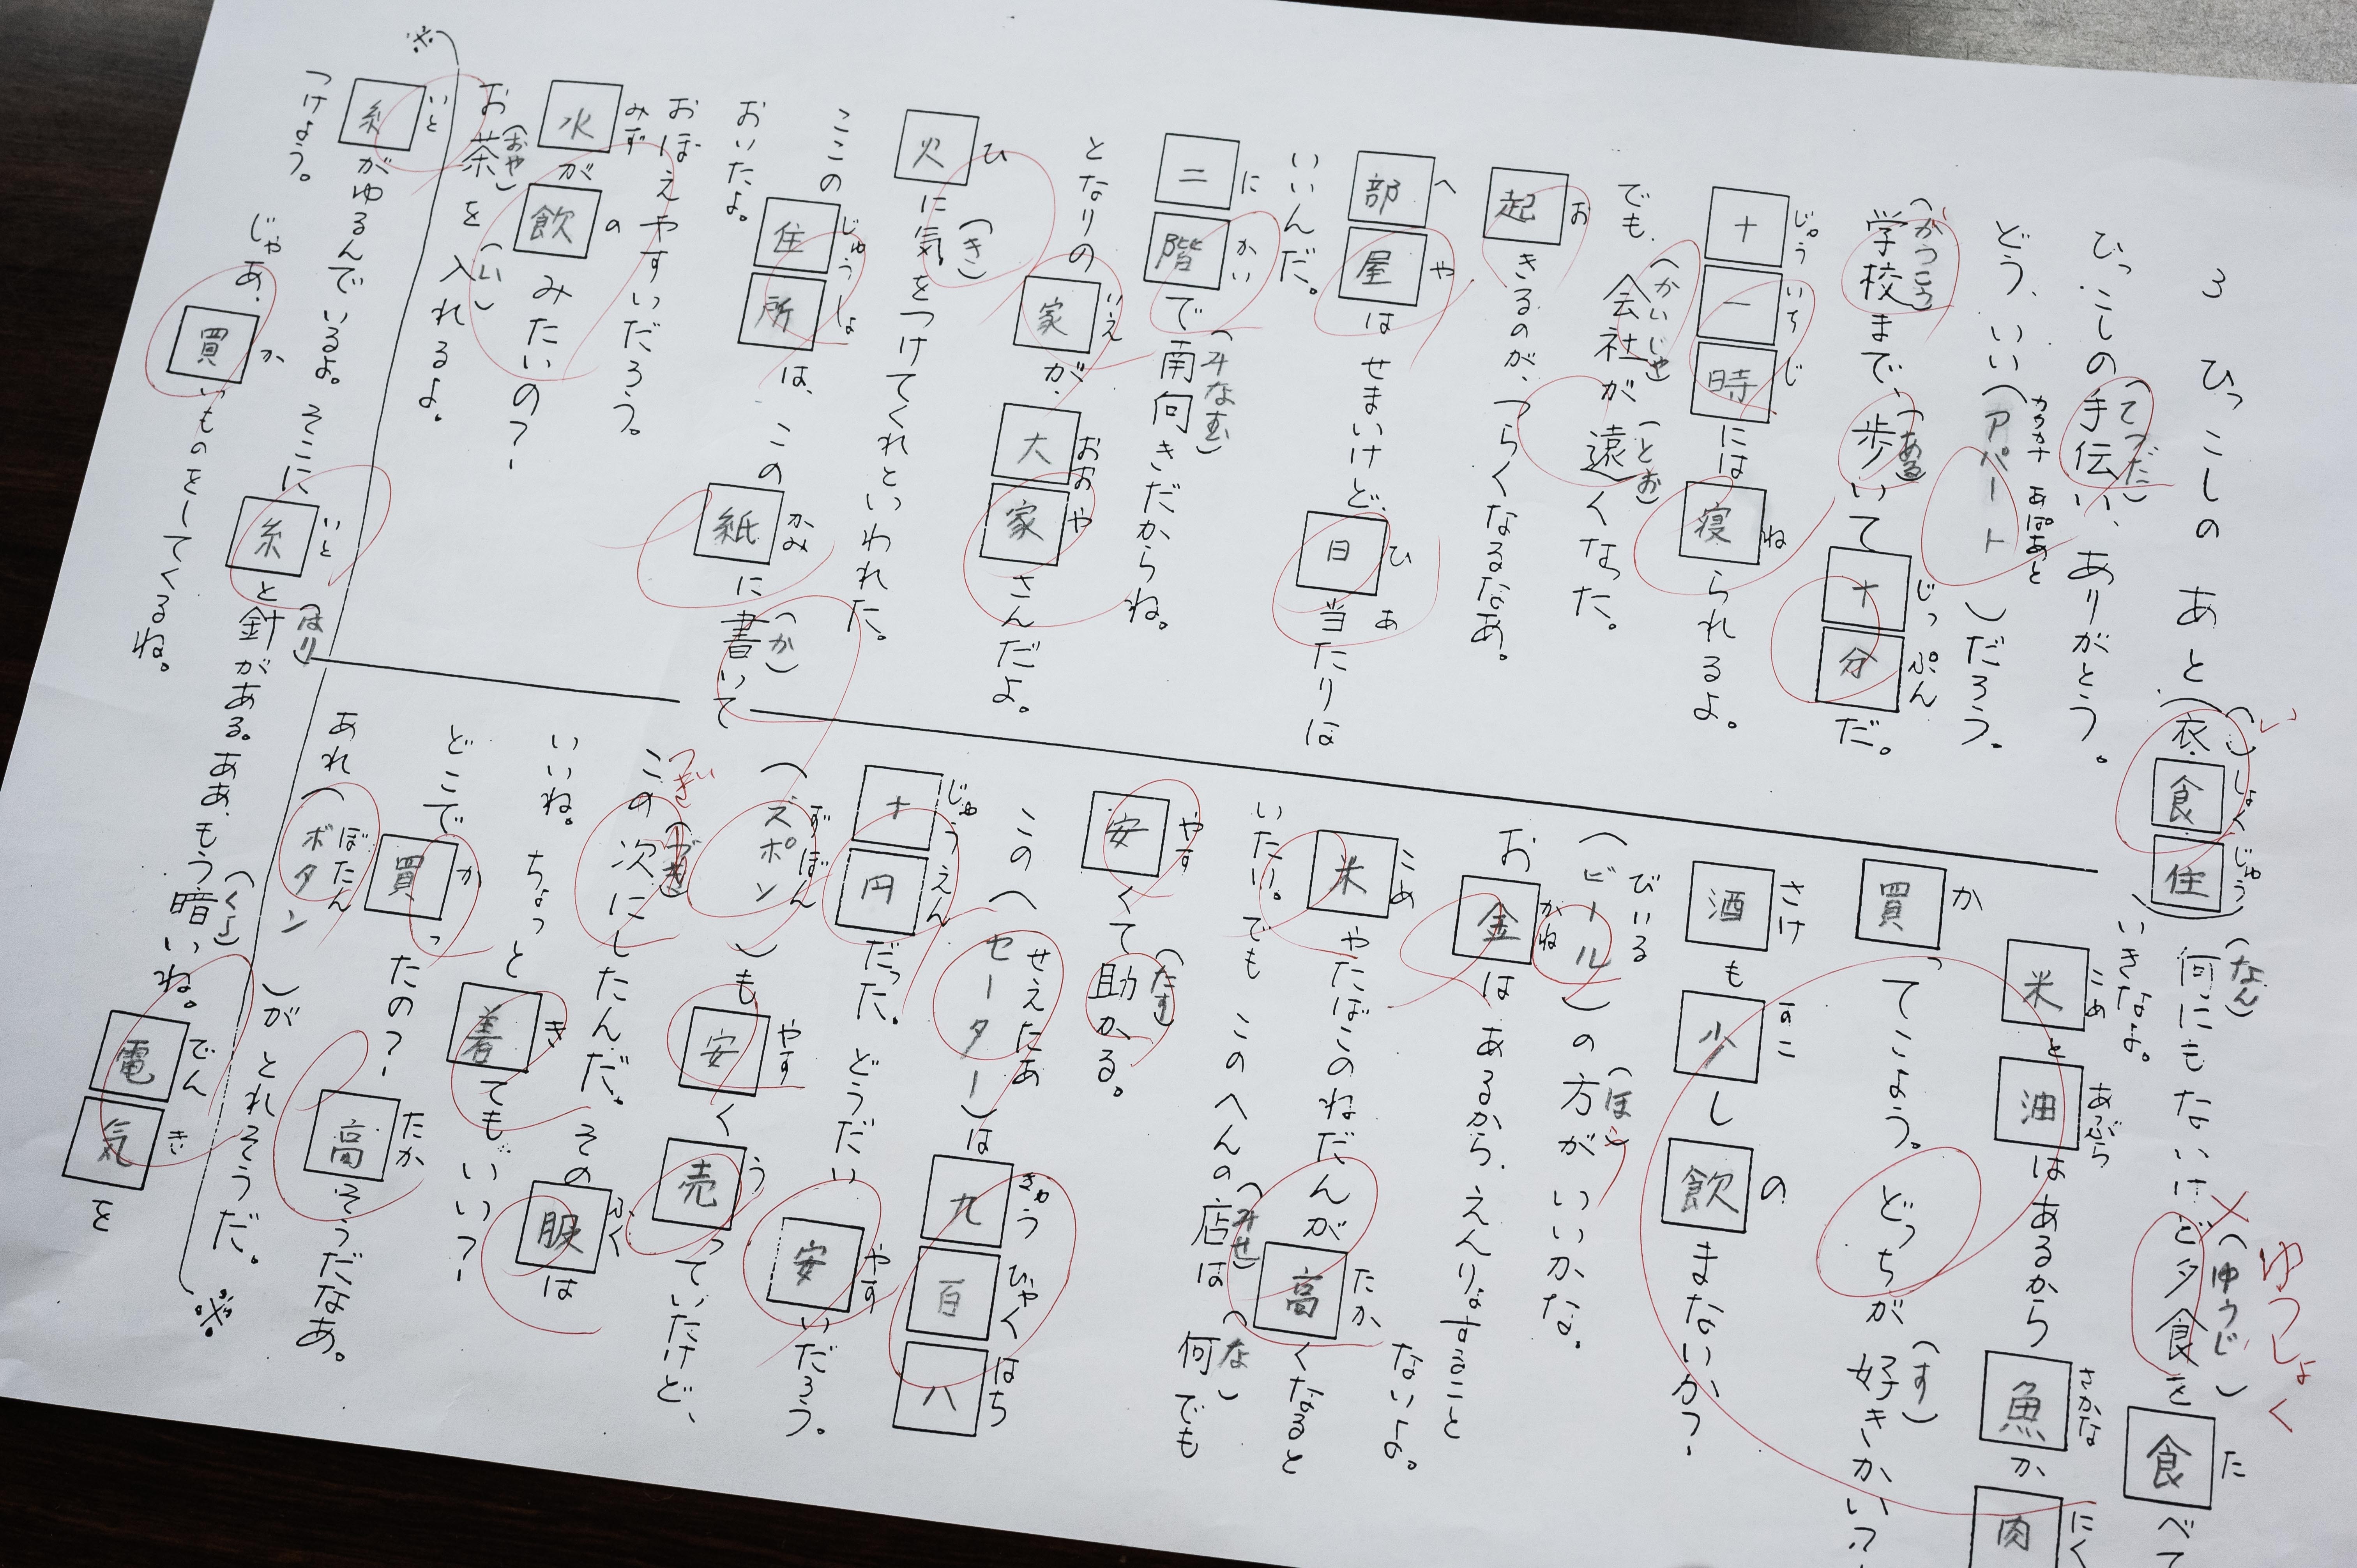 3 ひっこしの あと(衣食住)
(い)しょくじゅう
(てつだ)
ひっこしの手伝い、ありがとう。
カタカナ あぱあと
どう、いい(アパート)だろう。
(がっこう) (ある) じっぷん
学校まで、歩いて十分だ。
じゅういちじ ね
十一時には寝られるよ。
(かいしゃ) (とお)
でも、会社が遠くなった。
お
起きるのが、つらくなるなあ。
へや ひ あ
部屋はせまいけど、日当たりは
いいんだ。
にかい (みなむ)
二階で南向きだからね。
いえ おおや
となりの家が、大家さんだよ。
ひ (き)
火に気をつけてくれといわれた。
じゅうしょ かみ (か)
ここの住所は、この紙に書いて
おいたよ。
おぼえやすいだろう。
みず の
水が飲みたいの?
(おちゃ) (い)
お茶を入れるよ。
(なん) (ゆうじ) た
何にもないけど夕食を食べて
ゆうしょく
いきなよ。
こめ あぶら さかな にく
米と油はあるから魚か肉
か (す)
買ってこよう。どっちが好きかい?
さけ すこ の
酒も少し飲まないか?
びいる (ほう)
(ビール)の方がいいかな。
かね
お金はあるから、えんりょすること
ないよ。
こめ たか
米やたばこのねだんが高くなると
(みせ) (な)
いたい。でもこのへんの店は何でも
やす (たす)
安くて助かる。
せえたあ きゅうひゃくはち
この(セーター)は九百八
じゅうえん やす
十円だった。どうだい安いだろう。
ずぼん やす う
(ズポン)も安く売っていたけど、
つぎ ふく
この次にしたんだ。その服は
き
いいね。ちょっと着てもいい?
か たか
どこで買ったの? 高そうだなあ。
ぼたん
あれ(ボタン)がとれそうだ。
※
※
いと いと (はり) (くら) でんき
糸がゆるんでいるよ。そこに糸と針がある。ああ、もう暗いね。電気を
つけよう。
か
じゃあ、買いものをしてくるね。